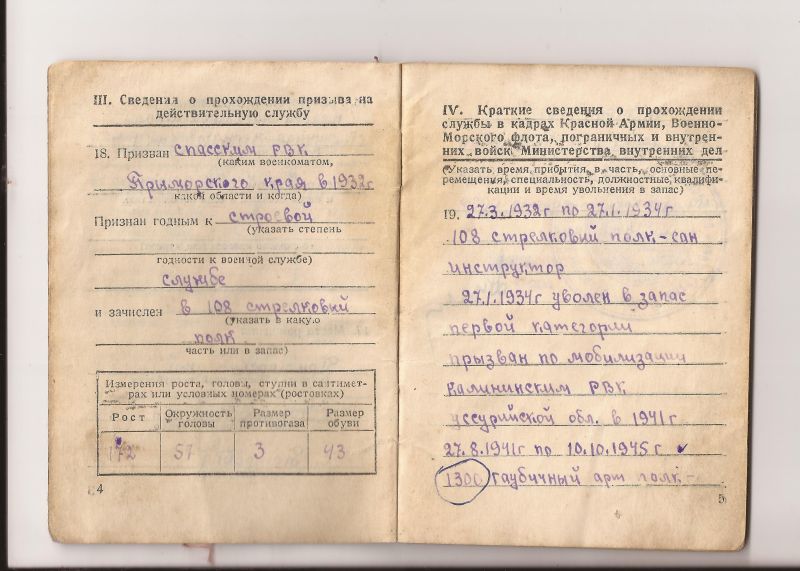 III. Сведения о прохождении призыва на
действительную службу
18. Призван спасским РВК
(каким военкоматом,
Приморского края в 1932г
какой области и когда)
Признан годным к строевой
(указать степень
годности к военной службе)
службе
и зачислен в 108 стрелковый
(указать в какую
полк
часть или в запас)
Измерения роста, головы, ступни в сантимет-
рах или условных номерах (ростовках)
Рост Окружность головы Размер противогаза Размер обуви
172 57 3 43
4
IV. Краткие сведения о прохождении
службы в кадрах Красной Армии, Военно-
Морского флота, пограничных и внутрен-
них войск Министерства внутренних дел
(Указать время прибытия в часть, основные пе-
ремещения, специальность, должностные квалифи-
кации и время увольнения в запас)
19. 27.3.1932г по 27.1.1934г
108 стрелковый полк-сан
инструктор
27.1.1934г уволен в запас
первой категории
прызван по мобилизации
Калининским РВК
уссурийской обл. в 1941г
27.8.1941г по 10.10.1945г
1300 гаубичный арт полк-
5